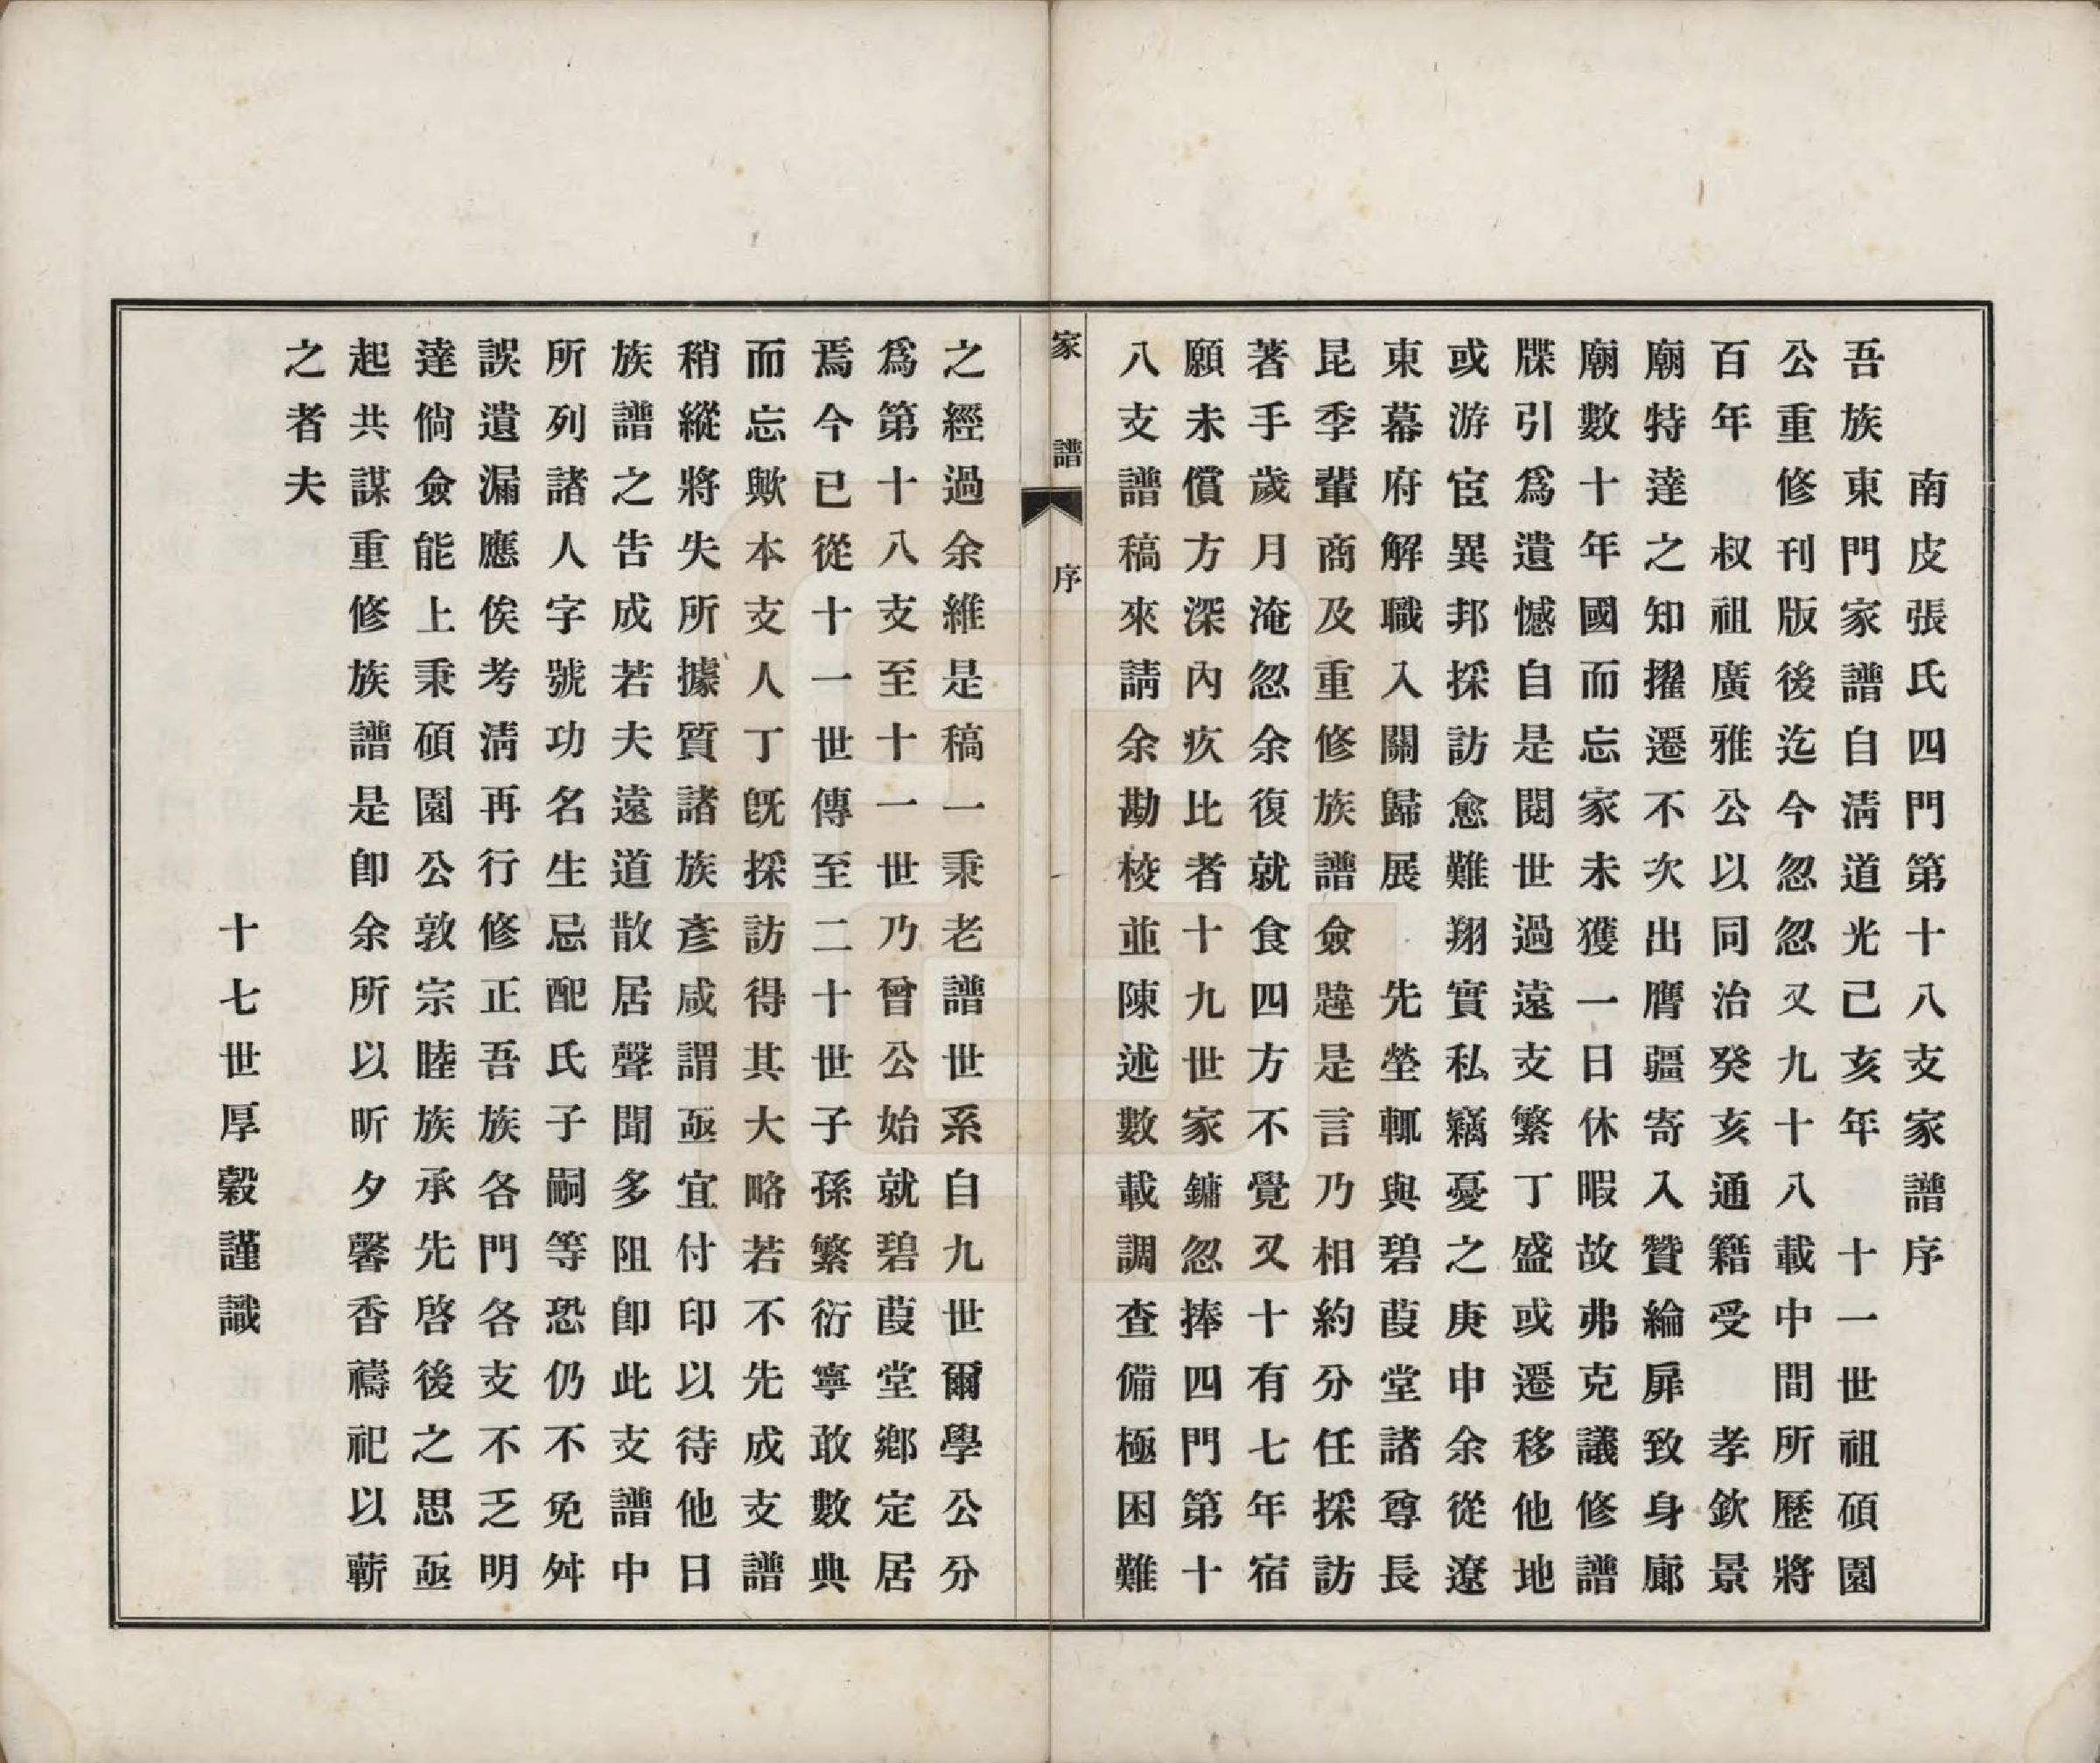 南皮張氏四門第十八支家譜序
吾族東門家譜自清道光己亥年　十一世祖碩園
公重修刊版後迄今忽忽又九十八載中間所歷將
百年　叔祖廣雅公以同治癸亥通籍受　孝欽景
廟特達之知擢遷不次出膺疆寄入贊綸扉致身廊
廟數十年國而忘家未獲一日休暇故弗克議修譜
牒引為遺憾自是閱世過遠支繁丁盛或遷移他地
或游宦異邦採訪愈難翔實私竊憂之庚申余從遼
東幕府解職入關歸展　先塋輒與碧葭堂諸尊長
昆季輩商及重修族譜僉韙是言乃相約分任採訪
著手歲月淹忽余復就食四方不覺又十有七年宿
願未償方深內疚比者十九世家鏞忽捧四門第十
八支譜稿來請余勘校並陳述數載調查備極困難
家譜　序
之經過余維是稿一秉老譜世系自九世爾學公分
爲第十八支至十一世乃曾公始就碧葭堂鄉定居
焉今已從十一世傳至二十世子孫繁衍寧敢數典
而忘歟本支人丁旣採訪得其大略若不先成支譜
稍縱將失所據質諸族彥咸謂亟宜付印以待他日
族譜之告成若夫遠道散居聲聞多阻卽此支譜中
所列諸人字號功名生忌配氏子嗣等恐仍不免舛
誤遺漏應俟考淸再行修正吾族各門各支不乏明
達倘僉能上秉碩園公敦宗睦族承先啓後之思亟
起共謀重修族譜是卽余所以昕夕馨香禱祀以蘄
之者夫
十七世厚穀謹識